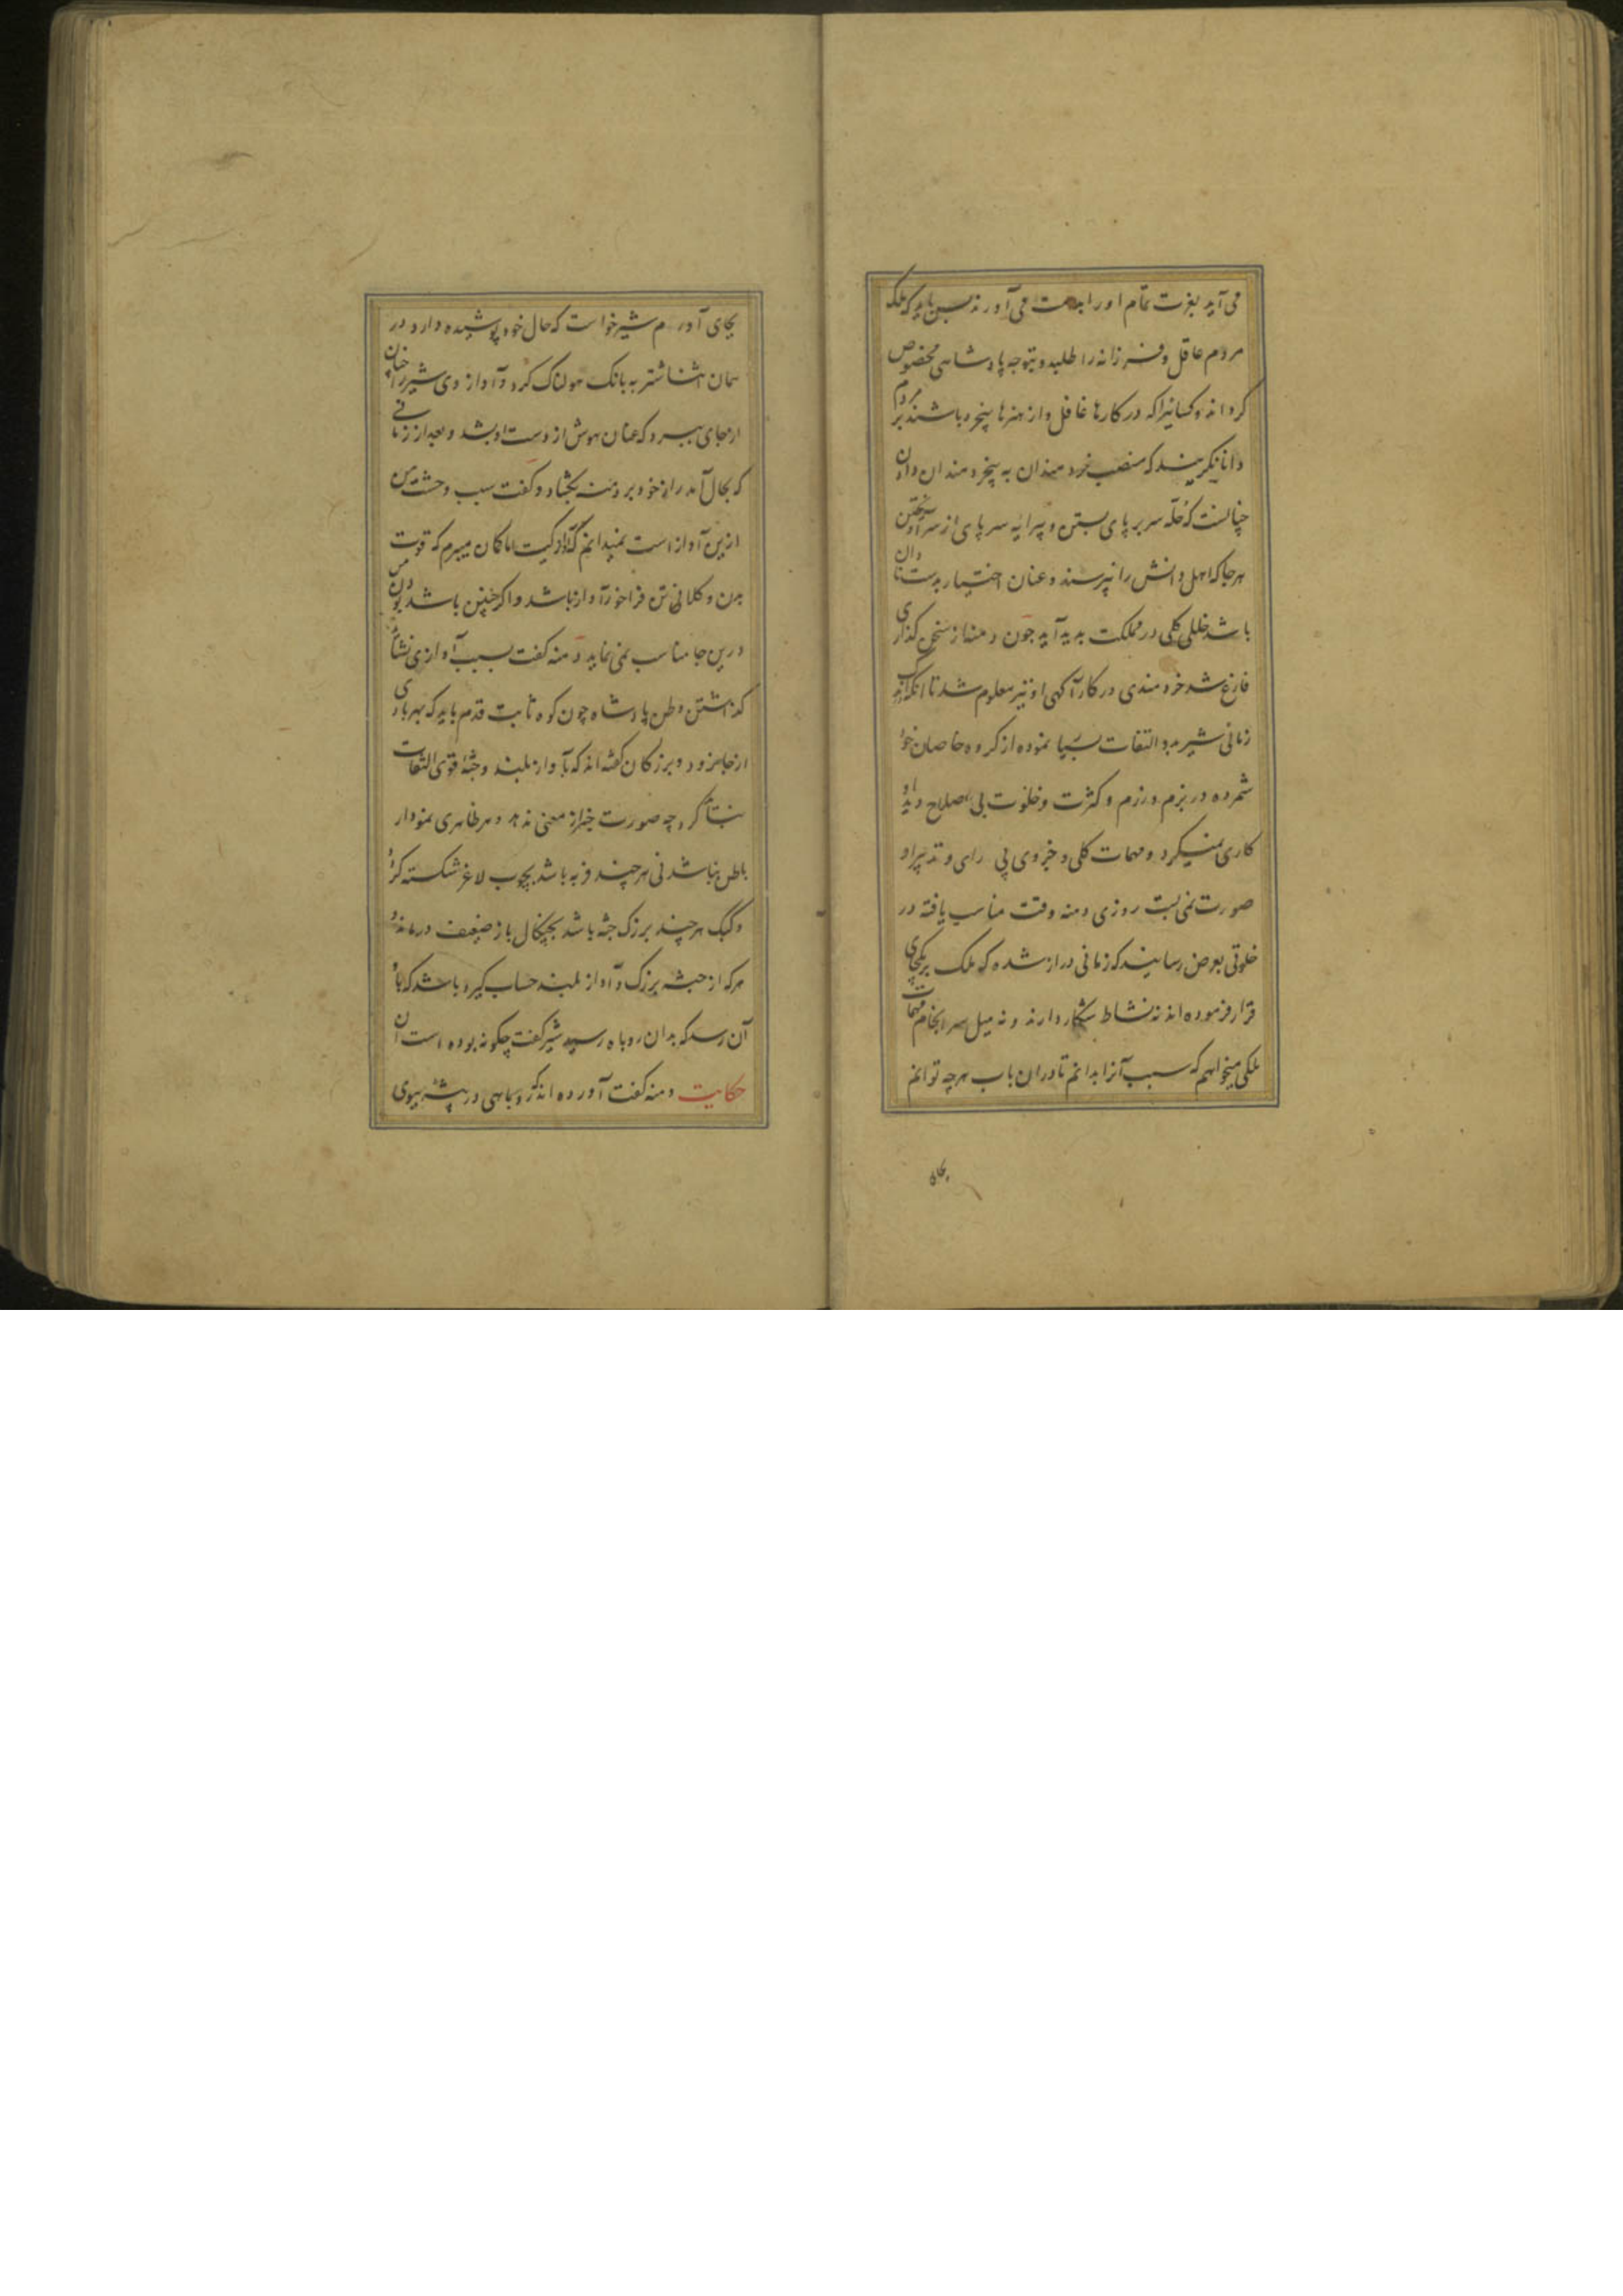 می آید بعزت تمام او را بدست می آورند پس باید که ملک
مردم عاقل و فرزانه را طلبد و بتوجه پادشاهی مخصوص
گرداند و کسانیرا که در کارها غافل و از هنرها بیخبر باشند بر مردم
دانا نگزیند که منصب خردمندان به بیخردمندان دادن
چنانست که حلّه سر بر پای بستن و پیرایه سر پای از سر آویختن
هر جا که اهل دانش را نپرسند و عنان اختیار بدست نادان
باشد خللی کلی در مملکت پدید آید چون دمنه از سخن گذاری
فارغ شد خردمندی در کار آگهی او نیز معلوم شد تا اندک
زمانی شیر بدو التفات بسیار نموده از گروه خاصان خود
شمرده در بزم و رزم و کثرت و خلوت بی اصلاح دید او
کاری نمیکرد و مهمات کلی و جزوی بی رای و تدبیر او
صورت نمی بست روزی دمنه وقت مناسب یافته در
خلوتی بعرض رسانید که زمانی دراز شده که ملک بر یکجای
قرار فرموده اند نه نشاط شکار دارند و نه میل سرانجام مهمات
ملکی میخواهم که سبب آنرا بدانم تا دران باب هر چه توانم
بجای
بجای آورم شیر خواست که حال خود پوشیده دارد در
همان اثنا شتربه بانک هولناک کرد و آواز وی شیر را چنان
از جای ببرد که عنان هوش از دست او بشد و بعد از زمانی
که بحال آمد راز خود بر دمنه بگشاد و گفت سبب وحشت من
ازین آواز است نمیدانم که آواز کیست اما گمان میبرم که قوت
بدن و کلانی تن فراخور آواز باشد و اگر چنین باشد بودن من
درین جا مناسب نمی نماید دمنه گفت بسبب آوازی نشاید
گذاشتن وطن پادشاه چون کوه ثابت قدم باید که بهر بادی
از جا نرود و بزرگان گفته اند که بآواز بلند و جثه قوی التفات
نباید کرد چه صورت خبر از معنی ندهد و هر ظاهری نمودار
باطن نباشد نی هر چند فربه باشد بچوب لاغر شکسته گردد
و کلنگ هر چند بزرگ جثه باشد بچنگال باز ضعیف درماند
هر که از جثه بزرگ و آواز بلند حساب گیرد باشد که باو
آن رسد که بدان روباه رسید شیر گفت چگونه بوده است آن
حکایت دمنه گفت آورده اند که روباهی در بیشه ببوی